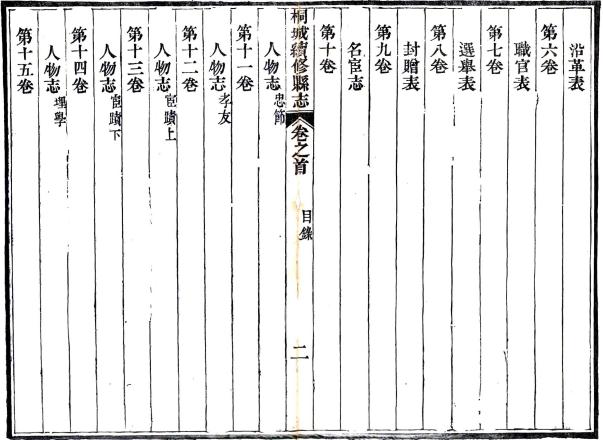 沿革表
第六卷
職官表
第七卷
選舉表
第八卷
封贈表
第九卷
名宦志
第十卷
桐城續修縣志 卷之首 目錄 二
人物志忠節
第十一卷
人物志孝友
第十二卷
人物志宦蹟上
第十三卷
人物志宦蹟下
第十四卷
人物志理學
第十五卷